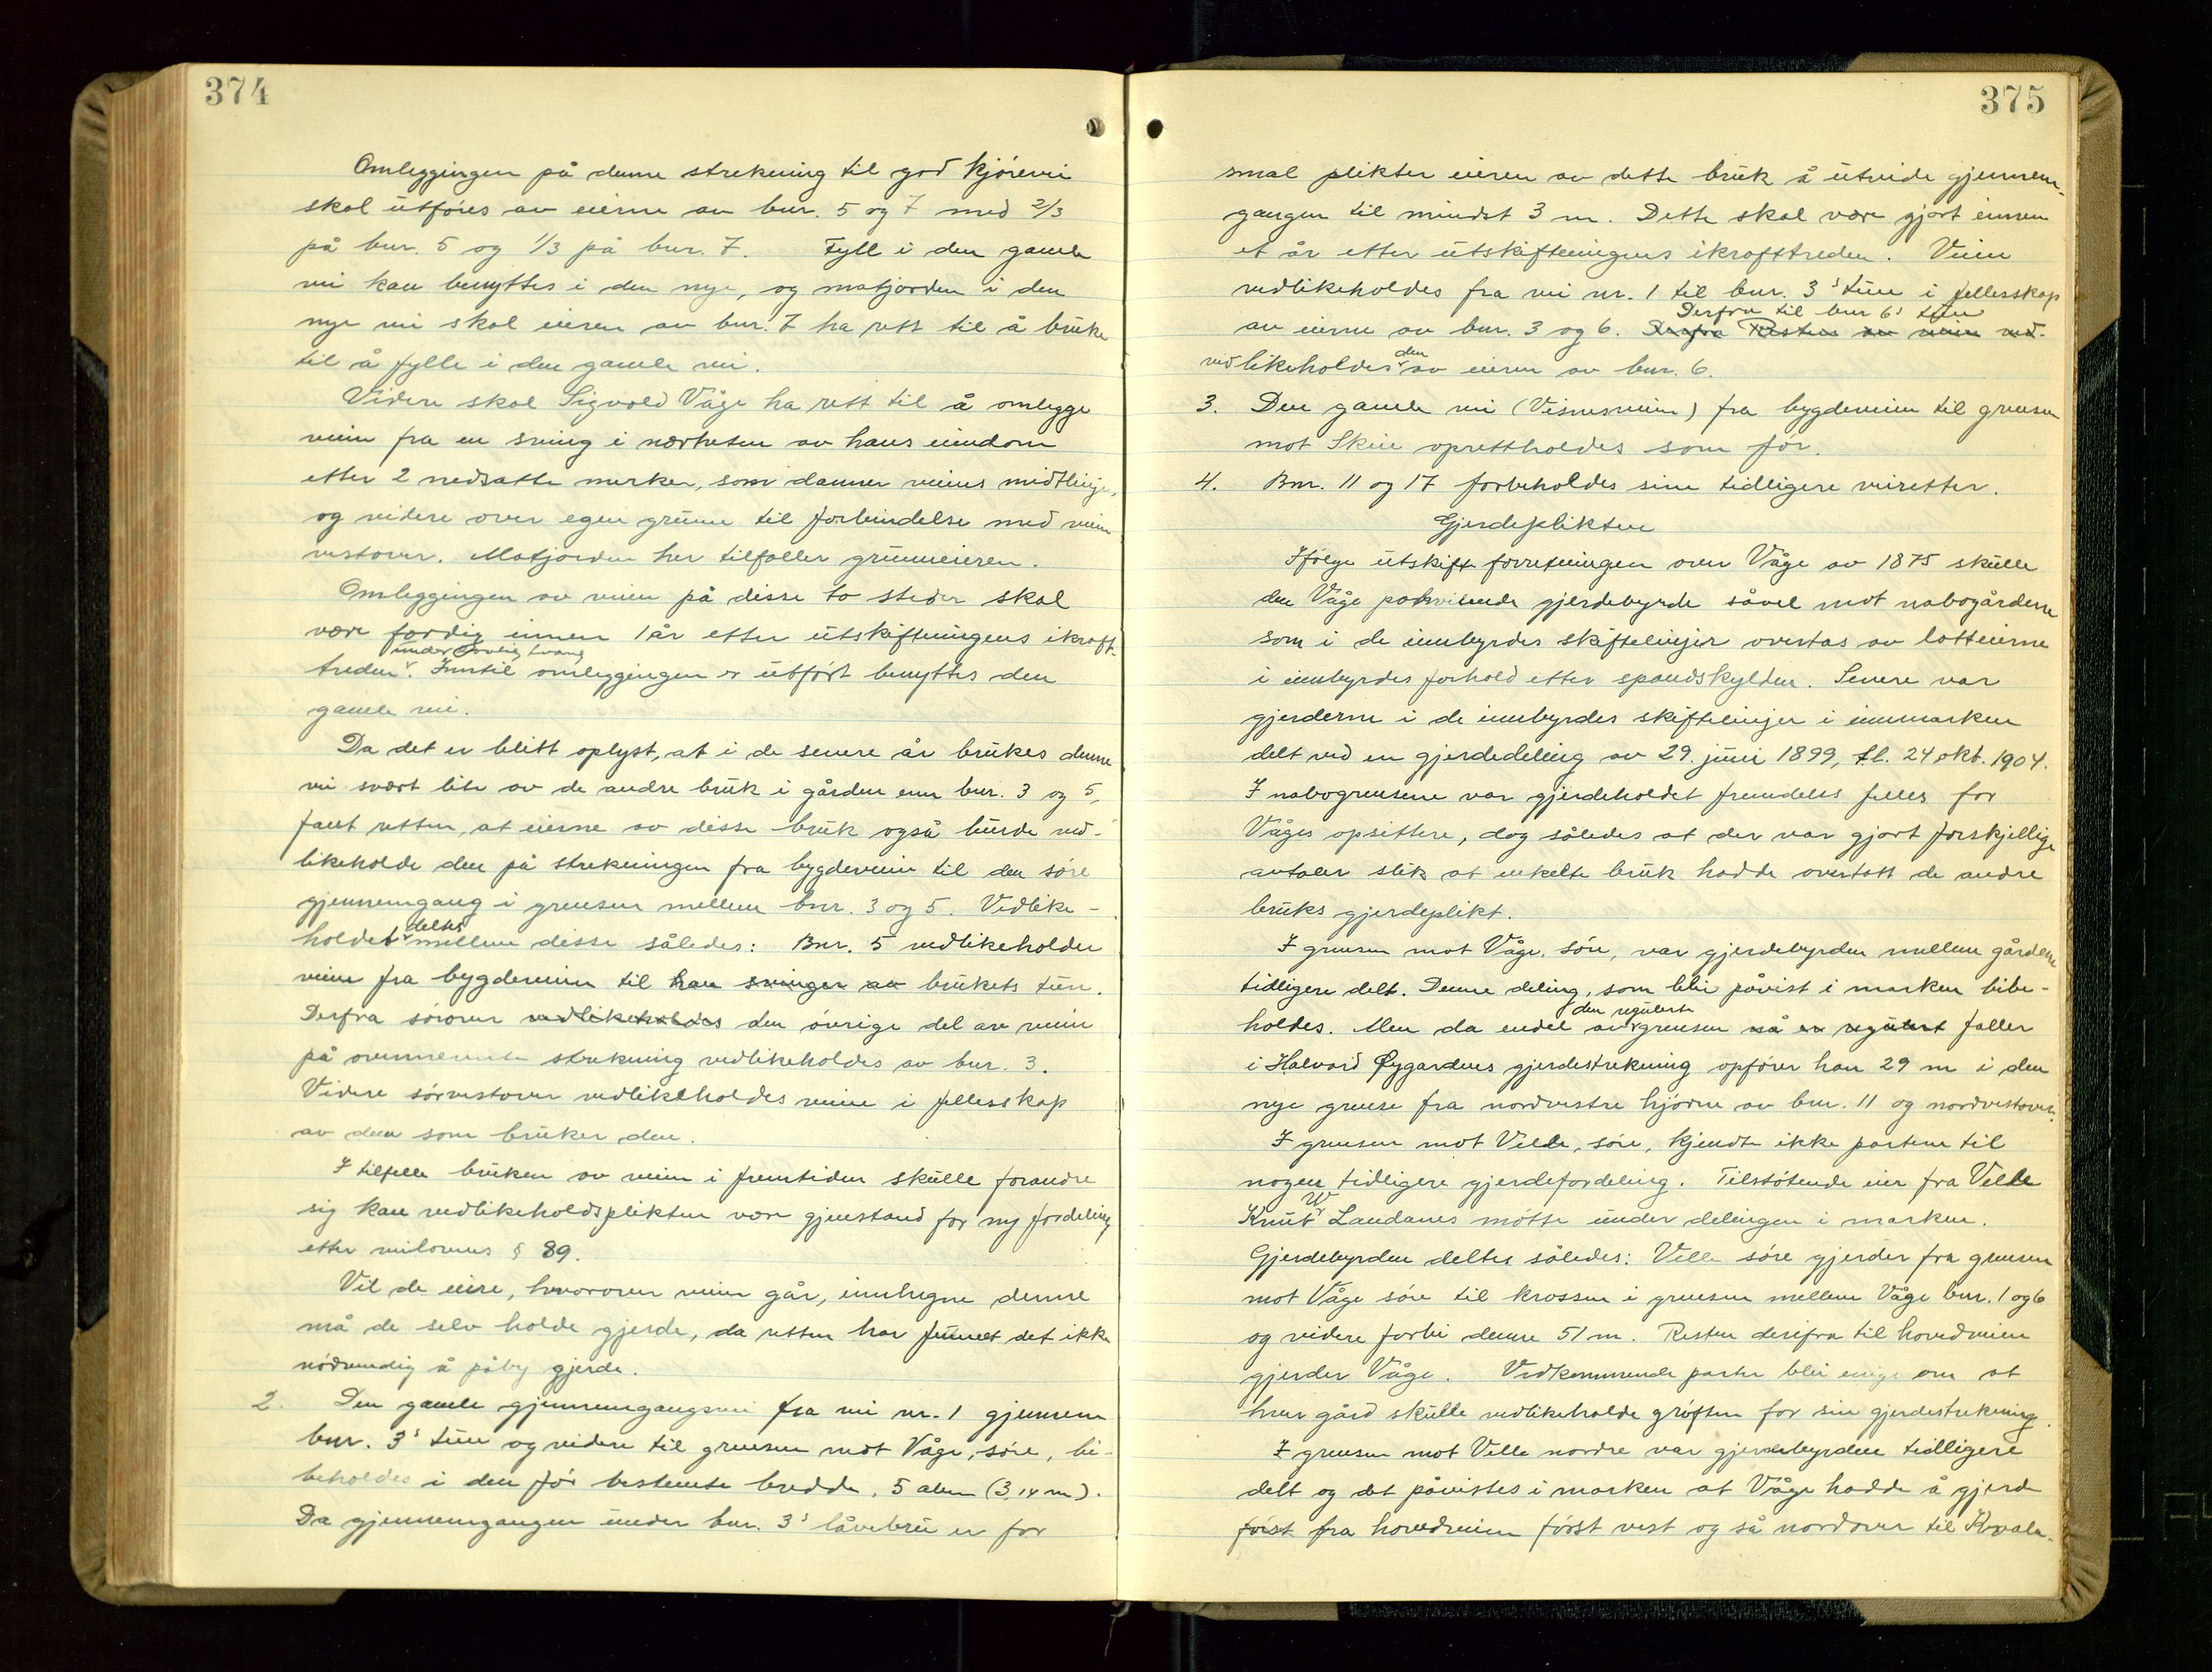 374
Omleggingen på denne strekning til god kjörevei
skal utföres av eierne av bnr. 5 og 7 med 2/3
på bnr. 5 og 1/3 på bnr. 7. Fyll i den gamle
vei kan benyttes i den nye, og matjorden i den
nye vei skal eieren av bnr. 7 ha rett til å bruke
til å fylle i den gamle vei.
Videre skal Sigvald Våge ha rett til å omlegge
veien fra en sving i nærheten av hans eiendom
etter 2 nedsatte merker, som danner veiens midtlinje,
og videre over egen grunn til forbindelse med veien
vestover. Matjorden her tilfaller grunneieren.
Omleggingen av veien på disse to steder skal
være ferdig innen 1 år efter utskiftningens ikraft-
under lovlig tvang
treden. Inntil omleggingen er utfört benyttes den
gamle vei.
Da det er blitt oplyst, at i de senere år brukes denne
vei svært lite av de andre bruk i gården enn bnr. 3 og 5,
fant retten, at eierne av disse bruk også burde ved-
likeholde den på strekningen fra bygdeveien til den söre
gjennemgang i grensen mellem bnr. 3 og 5. Vedlike-
deltes
holdet mellem disse således: Bnr. 5 vedlikeholder
veien fra bygdeveien til han svinger av brukets tun.
Derfra sörover vedlikeholdes den övrige del av veien
på ovennevnte strekning vedlikeholdes av bnr. 3.
Videre sörvestover vedlikeholdes veien i fellesskap
av dem som bruker den.
I tilfelle bruken av veien i fremtiden skulle forandre
sig kan vedlikeholdsplikten være gjenstand for ny fordeling
etter veilovens § 89.
Vil de eiere, hvorover veien går, innhegne denne
må de selv holde gjerde, da retten har funnet det ikke
nödvendig å påby gjerde.
2. Den gamle gjennemgangsvei fra vei nr. 1 gjennem
bnr. 3's tun og videre til grensen mot Våge, söre, bi-
beholdes i den för bestemte bredde, 5 alen (3,14 m).
Da gjennemgangen under bnr. 3's låvebru er for
375
smal plikter eieren av dette bruk å utvide gjennem-
gangen til mindst 3 m. Dette skal være gjort innen
et år etter utskiftningens ikrafttreden. Veien
vedlikeholdes fra vei nr. 1 til bnr. 3's tun i fellesskap
Derfra til bnr 6's tun
av eierne av bnr. 3 og 6. Derfra Resten av veien ved-
den
vedlikeholdes av eieren av bnr. 6.
3. Den gamle vei (Visnesveien) fra bygdeveien til grensen
mot Skeie oprettholdes som för.
4. Bnr. 11 og 17 forbeholdes sine tidligere veiretter.
Gjerdeplikten
Ifölge utskift. forretningen over Våge av 1875 skulle
den Våge påhvilende gjerdebyrde såvel mot nabogårdene
som i de innbyrdes skiftelinjer overtas av lotteierne
i innbyrdes forhold etter spandskylden. Senere var
gjerderne i de innbyrdes skiftelinjer i innmarken
delt ved en gjerdedeling av 29. juni 1899, tl. 24 okt. 1904.
I nabogrensene var gjerdeholdet fremdeles felles for
Våges opsittere, dog således at der var gjort forskjellige
avtaler slik at enkelte bruk hadde overtatt de andre
bruks gjerdeplikt.
I grensen mot Våge, söre, var gjerdebyrden mellem gårdene
tidligere delt. Denne deling, som blei påvist i marken bibe-
den regulerte
holdes. Men da endel av grensen nå er regulert faller
i Halvard Øygardens gjerdestrekning opförer han 29 m i den
nye grense fra nordvestre hjörne av bnr. 11 og nordvestover.
I grensen mot Velle, söre, kjendte ikke partene til
nogen tidligere gjerdefordeling. Tilstötende eier fra Velle
W
Knut Landanes mötte under delingen i marken.
Gjerdebyrden deltes således: Velle söre gjerder fra grensen
mot Våge söre til krossen i grensen mellem Våge bnr. 1 og 6
og videre forbi denne 51 m. Resten derifra til hovedveien
gjerder Våge. Vedkommende parter blei enige om at
hver gård skulle vedlikeholde gröften for sin gjerdestrekning.
I grensen mot Velle nordre var gjerdebyrden tidligere
delt og det påvistes i marken at Våge hadde å gjerde
först fra hovedveien först vest og så nordover til Kvala-